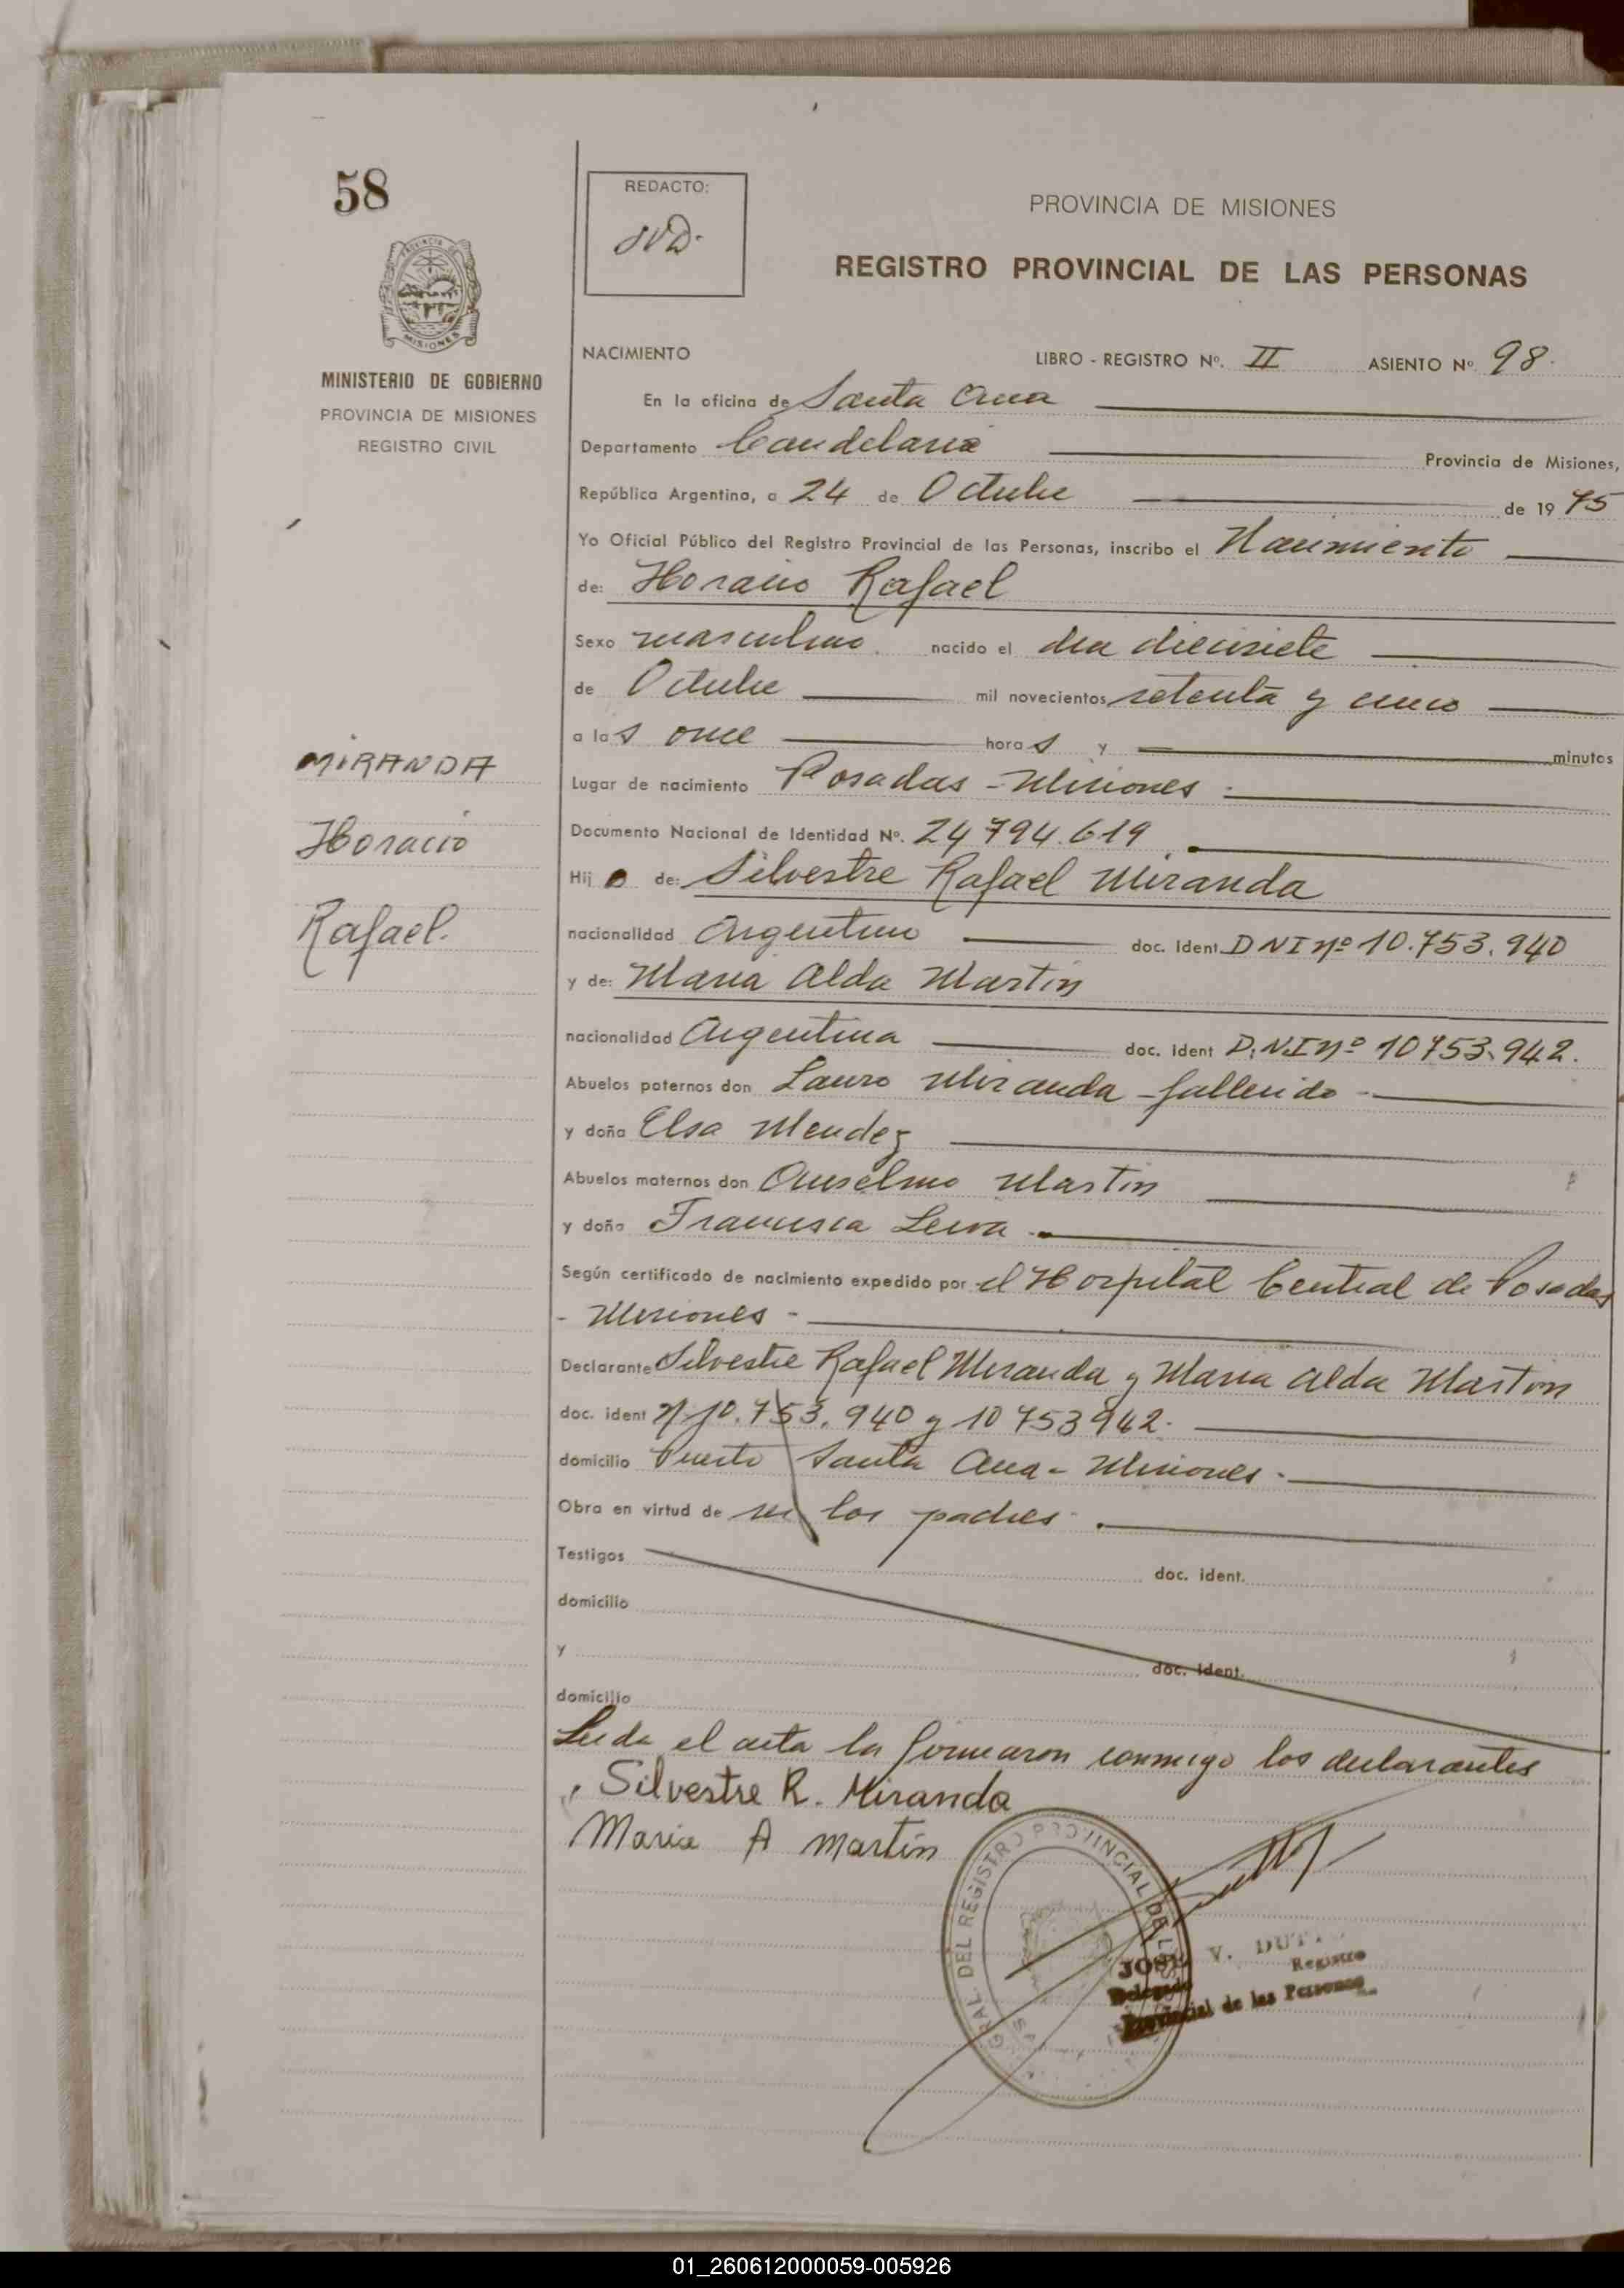 58
REDACTO:
PROVINCIA DE MISIONES
REGISTRO PROVINCIAL DE LAS PERSONAS
MISIONES
MINISTERIO DE GOBIERNO
PROVINCIA DE MISIONES
REGISTRO CIVIL
NACIMIENTO LIBRO - REGISTRO Nº. II ASIENTO Nº 98.
En la oficina de Santa Ana
Departamento Candelaria Provincia de Misiones,
República Argentina, a 24 de Octubre de 1975
Yo Oficial Público del Registro Provincial de las Personas, inscribo el Nacimiento
de: Horacio Rafael
Sexo masculino. nacido el dia diecisiete
de Octubre mil novecientos setenta y cinco
a las once horas y minutos
Lugar de nacimiento Posadas - Misiones -
Documento Nacional de Identidad Nº. 24794.619
MIRANDA
Horacio
Rafael.
Hijo de: Silvestre Rafael Miranda
nacionalidad Argentino doc. Ident DNI nº 10.753.940
y de: Maria Alda Martin
nacionalidad Argentina doc. Ident D.N.I nº 10753.942.
Abuelos paternos don Lauro Miranda - fallecido -
y doña Elsa Mendez
Abuelos maternos don Anselmo Martin
y doña Francisca Leiva -
Según certificado de nacimiento expedido por el Hospital Central de Posadas
- Misiones -
Declarante Silvestre Rafael Miranda y Maria Alda Martin
doc. ident 10.753.940 y 10753942.
domicilio Puerto Santa Ana - Misiones -
Obra en virtud de ser los padres -
Testigos doc. ident.
domicilio
y doc. ident.
domicilio
Leida el acta la firmaron conmigo los declarantes
Silvestre R. Miranda
Maria A Martin
GRAL. DEL REGISTRO PROVINCIAL DE LAS
JOSE V.
Delegado Registro
Provincial de las Personas
01_260612000059-005926